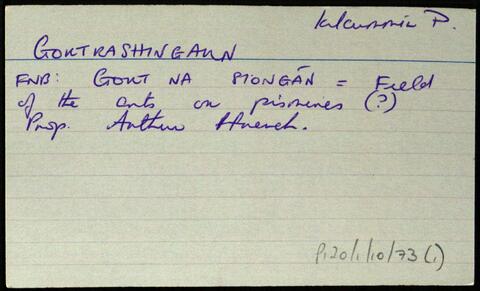 Kilcummin P.
GORTRASHINGAUN
FNB: GORT NA SIONGÁN = Field
of the ants or pismires (?)
Prop. Arthur
P120/1/10/73 (1)